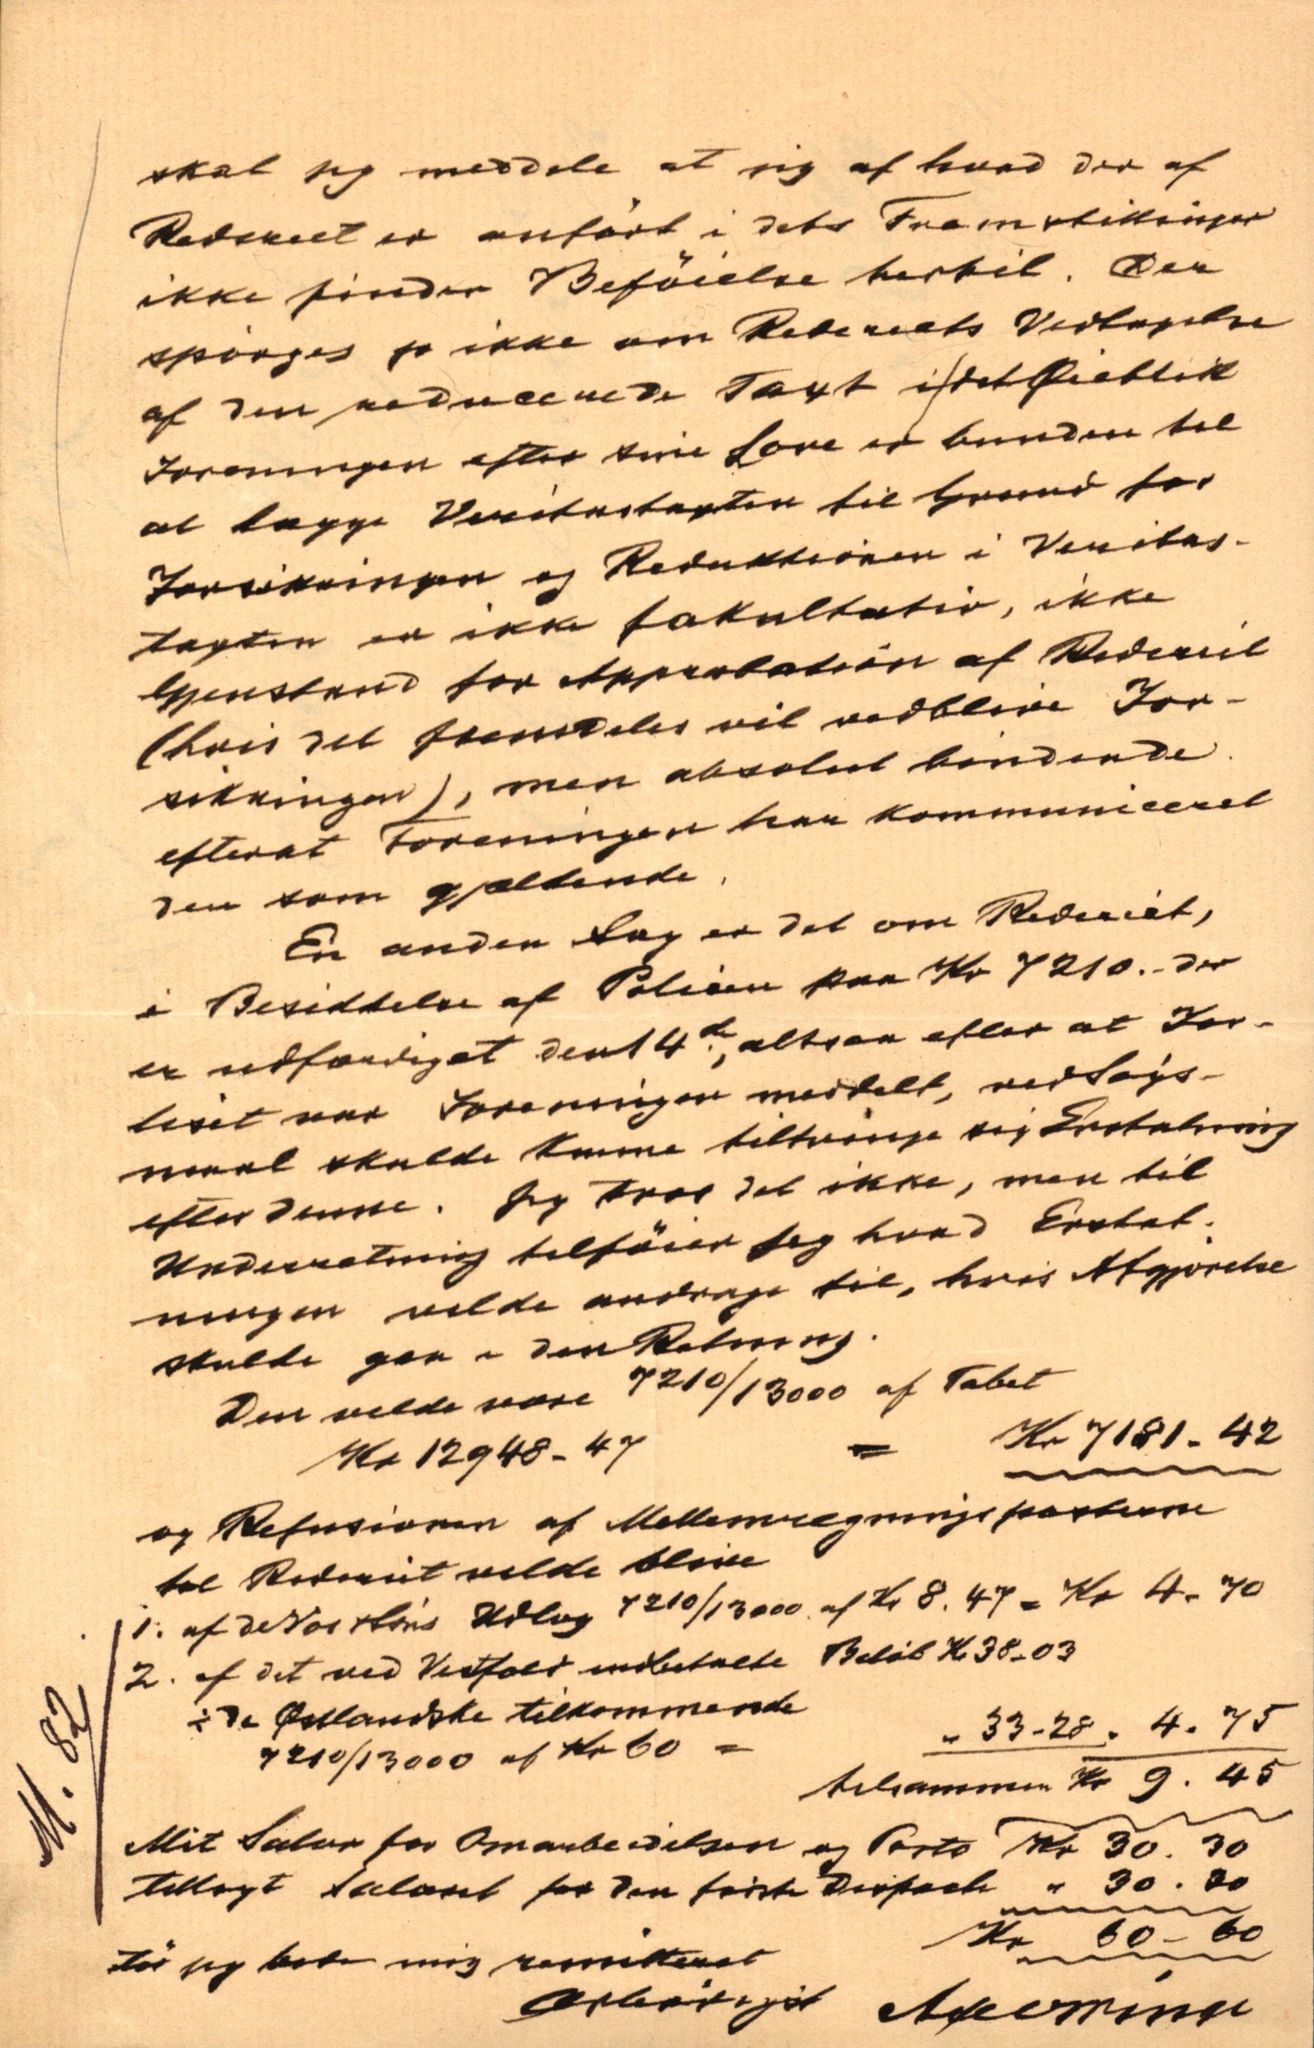 skal jeg meddele at jeg af hvad der af
Rederiet er anført i dets Fremstillinger
ikke finder Beføielse hertil. Der
spørges jo ikke om Rederiets Vedtagelse
af den reducerede Taxt i det Øieblik
Foreningen efter sine Love er bunden til
at lægge Veritastaxten til Grund for
Forsikringen og Reduktionen i Veritas-
taxten er ikke fakultativ, ikke
Gjenstand for Approbation af Rederiet
(hvis det fremdeles vil vedblive For-
sikringen), men absolut bindende
efterat Foreningen har kommuniceret
den som gjældende.
En anden Sag er det om Rederiet,
i Besiddelse af Policen paa Kr 7210.- der
er udfærdiget den 14de, altsaa efter at For-
liset var Foreningen meddelt, ved Søgs-
maal skulde kunne tiltvinge sig Erstatning
efter denne. Jeg tror det ikke, men til
Underretning tilføier jeg hvad Erstat-
ningen vilde andrage til, hvis Afgjørelse
skulde gaa i den Retning.
Den vilde være 7210/13000 af Tabet
Kr 12948-47 = Kr 7181-42
og Refusionen af Mellemregningsposterne
til Rederiet vilde blive
1. af de Vos & Søns Udlæg 7210/13000 af Kr 8.47 = Kr 4-70
2. af det ved Vestfold indbetalte Beløb Kr 38-03
÷ de Østlandske tilkommende
7210/13000 af Kr 60 = " 33-28 " 4.75
tilsammen Kr 9.45
Mit Salær for Omarbeidelsen og Porto Kr 30.30
tillagt Salæret for den første Dispache " 30.30
Kr 60-60
tør jeg bede mig remitteret
Ærbødigst
M. 82